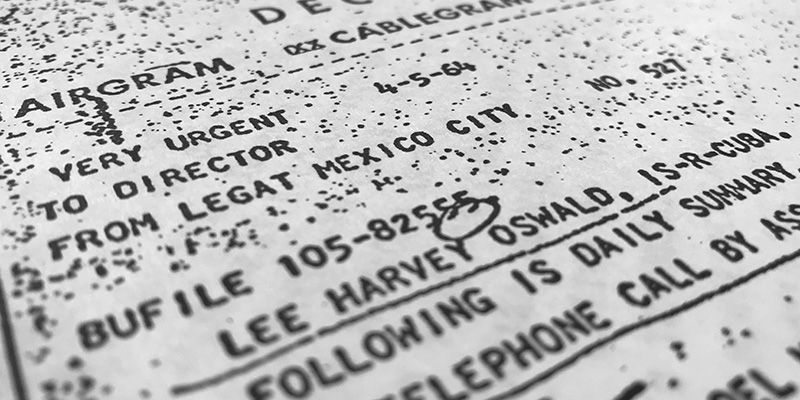 DEC
xx CABLEGRAM
AIRGRAM
4-5-64
NO. 527
VERY URGENT
TO DIRECTOR
FROM LEGAT MEXICO CITY
BUFILE 105-82555
LEE HARVEY OSWALD, IS-R-CUBA.
FOLLOWING IS DAILY SUMMARY.
TELEPHONE CALL BY ASS